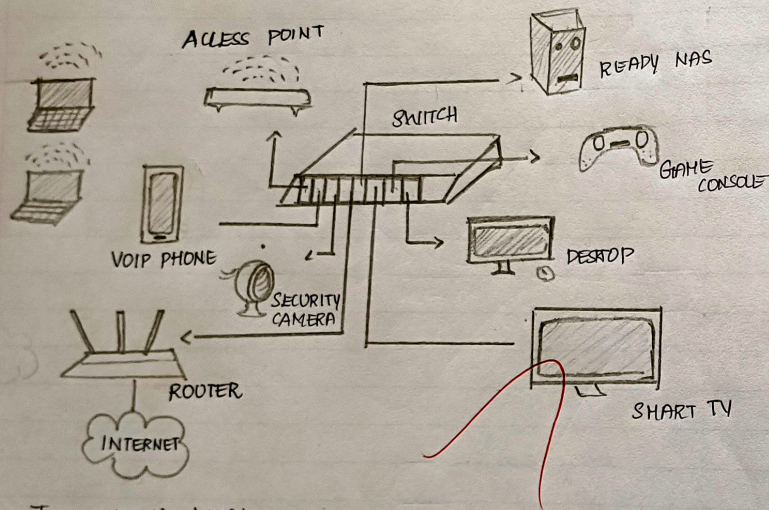 ACCESS POINT
READY NAS
SWITCH
GAME
CONSOLE
VOIP PHONE
DESKTOP
SECURITY
CAMERA
ROUTER
SMART TV
INTERNET